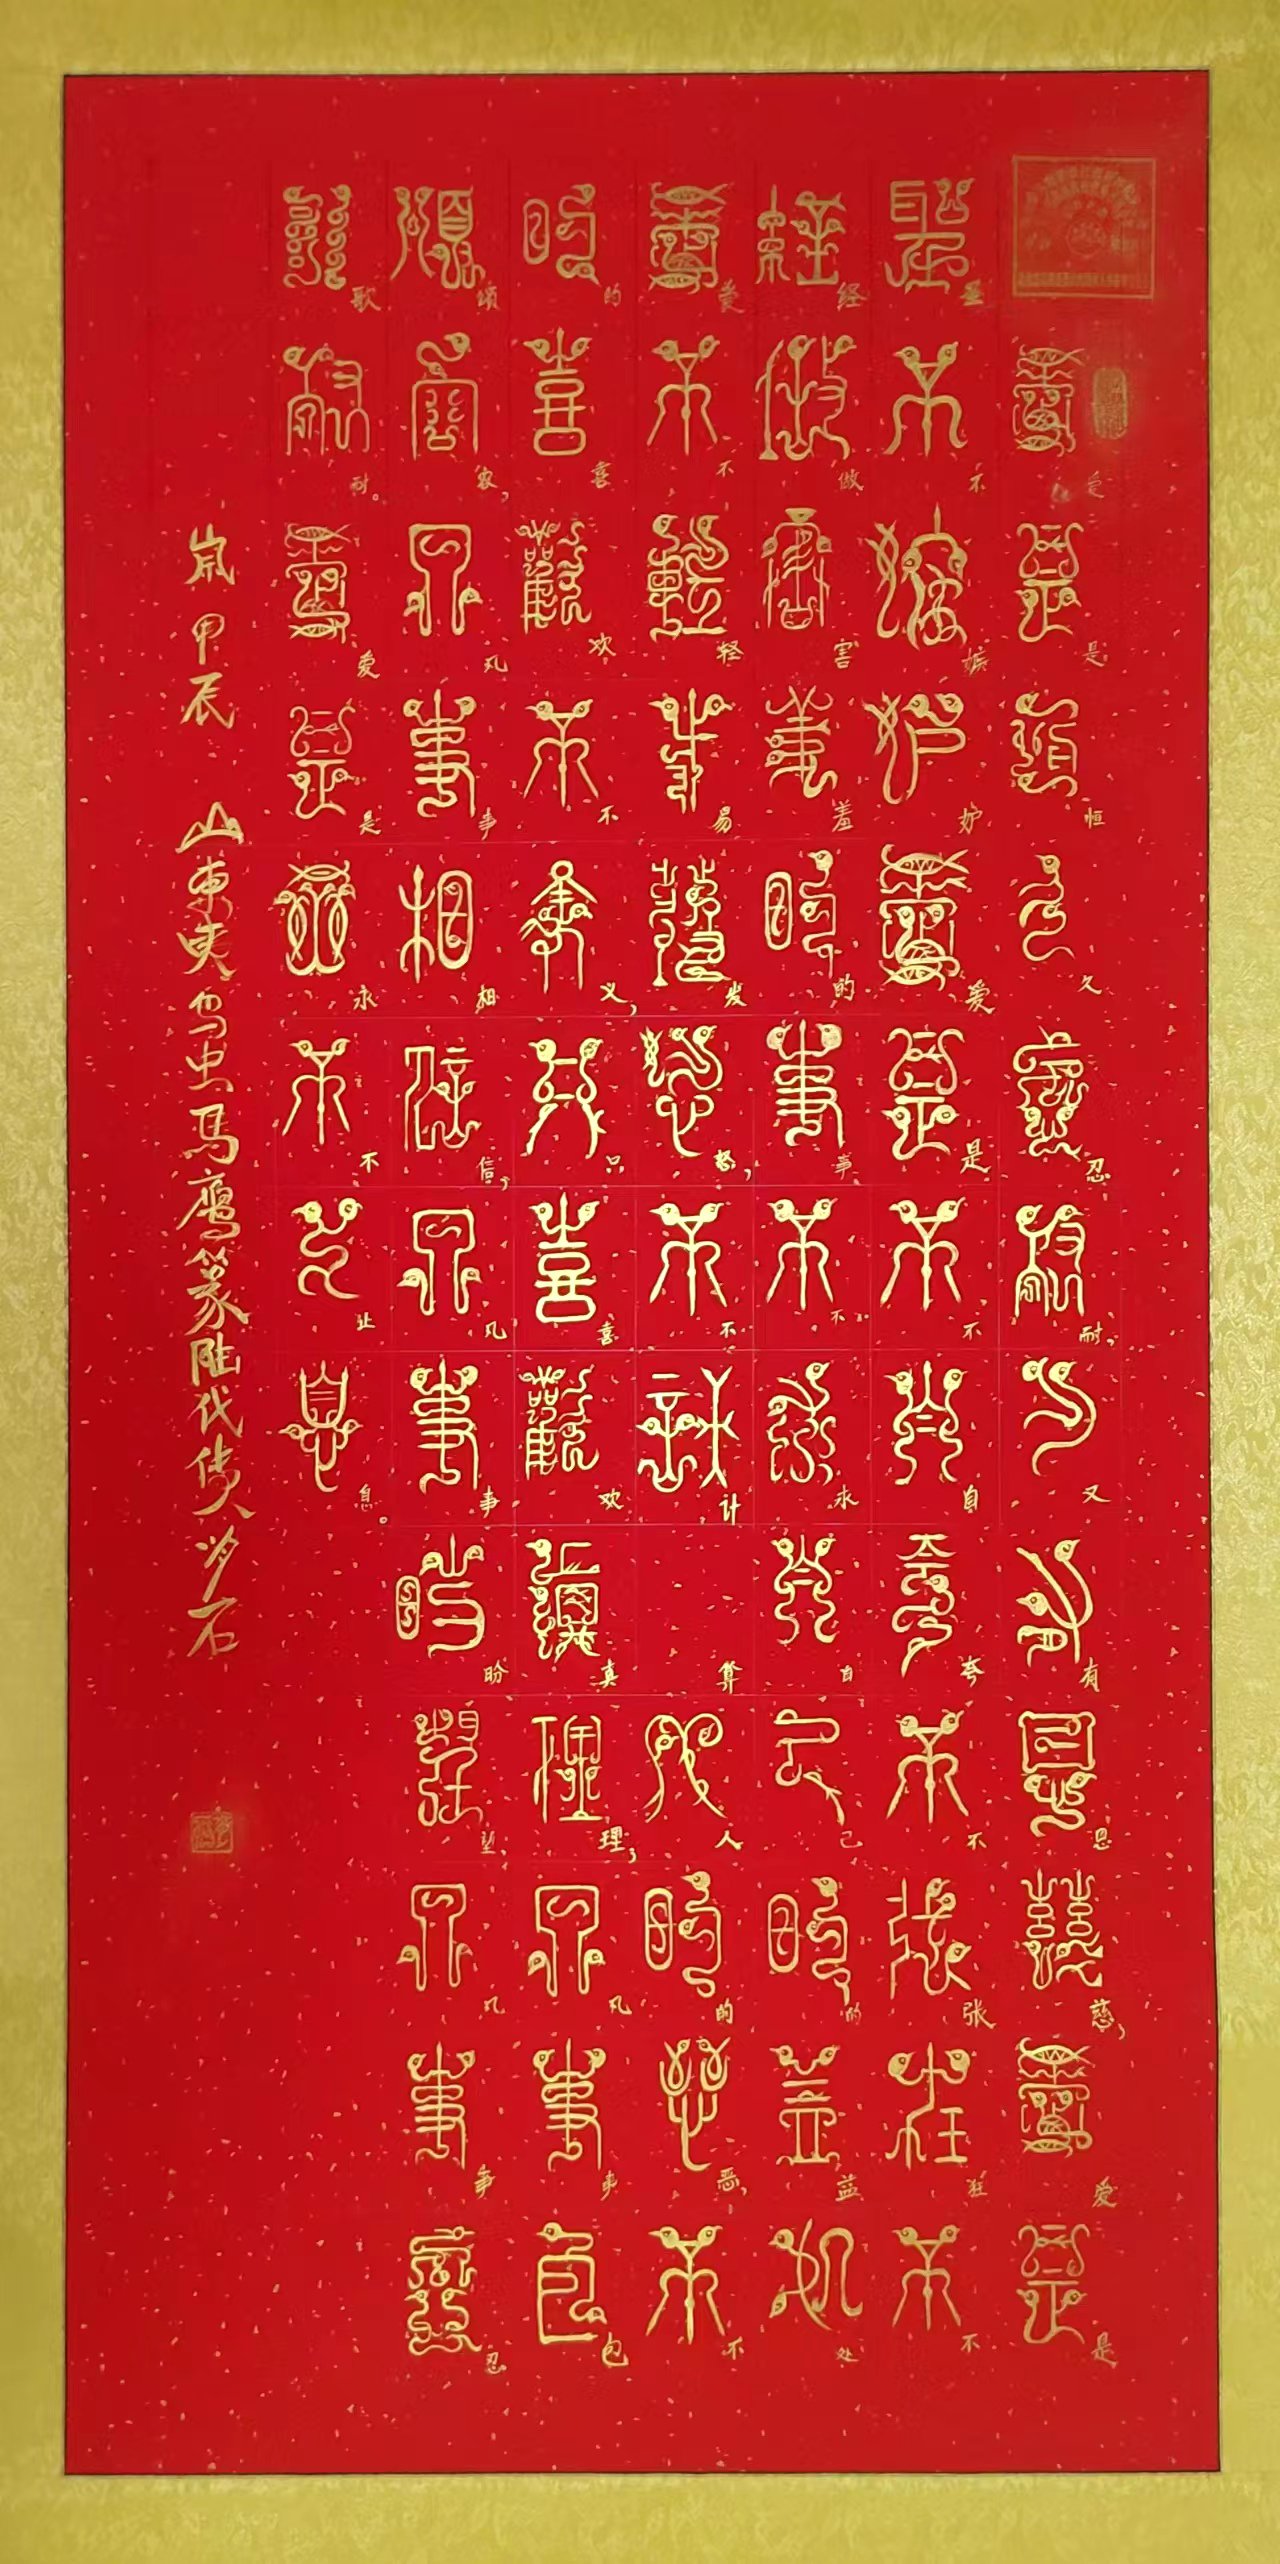 圣经爱的颂歌
爱是恒久忍耐,又有恩慈,爱是
不嫉妒爱是不自夸不张狂不
做害羞的事不求自己的益处
不轻易发怒,不计算人的恶,不
喜欢不义,只喜欢真理,凡事包
容,凡事相信,凡事盼望,凡事忍
耐。爱是永不止息。
岁甲辰 山东鸟虫马鹰篆陆代传人石